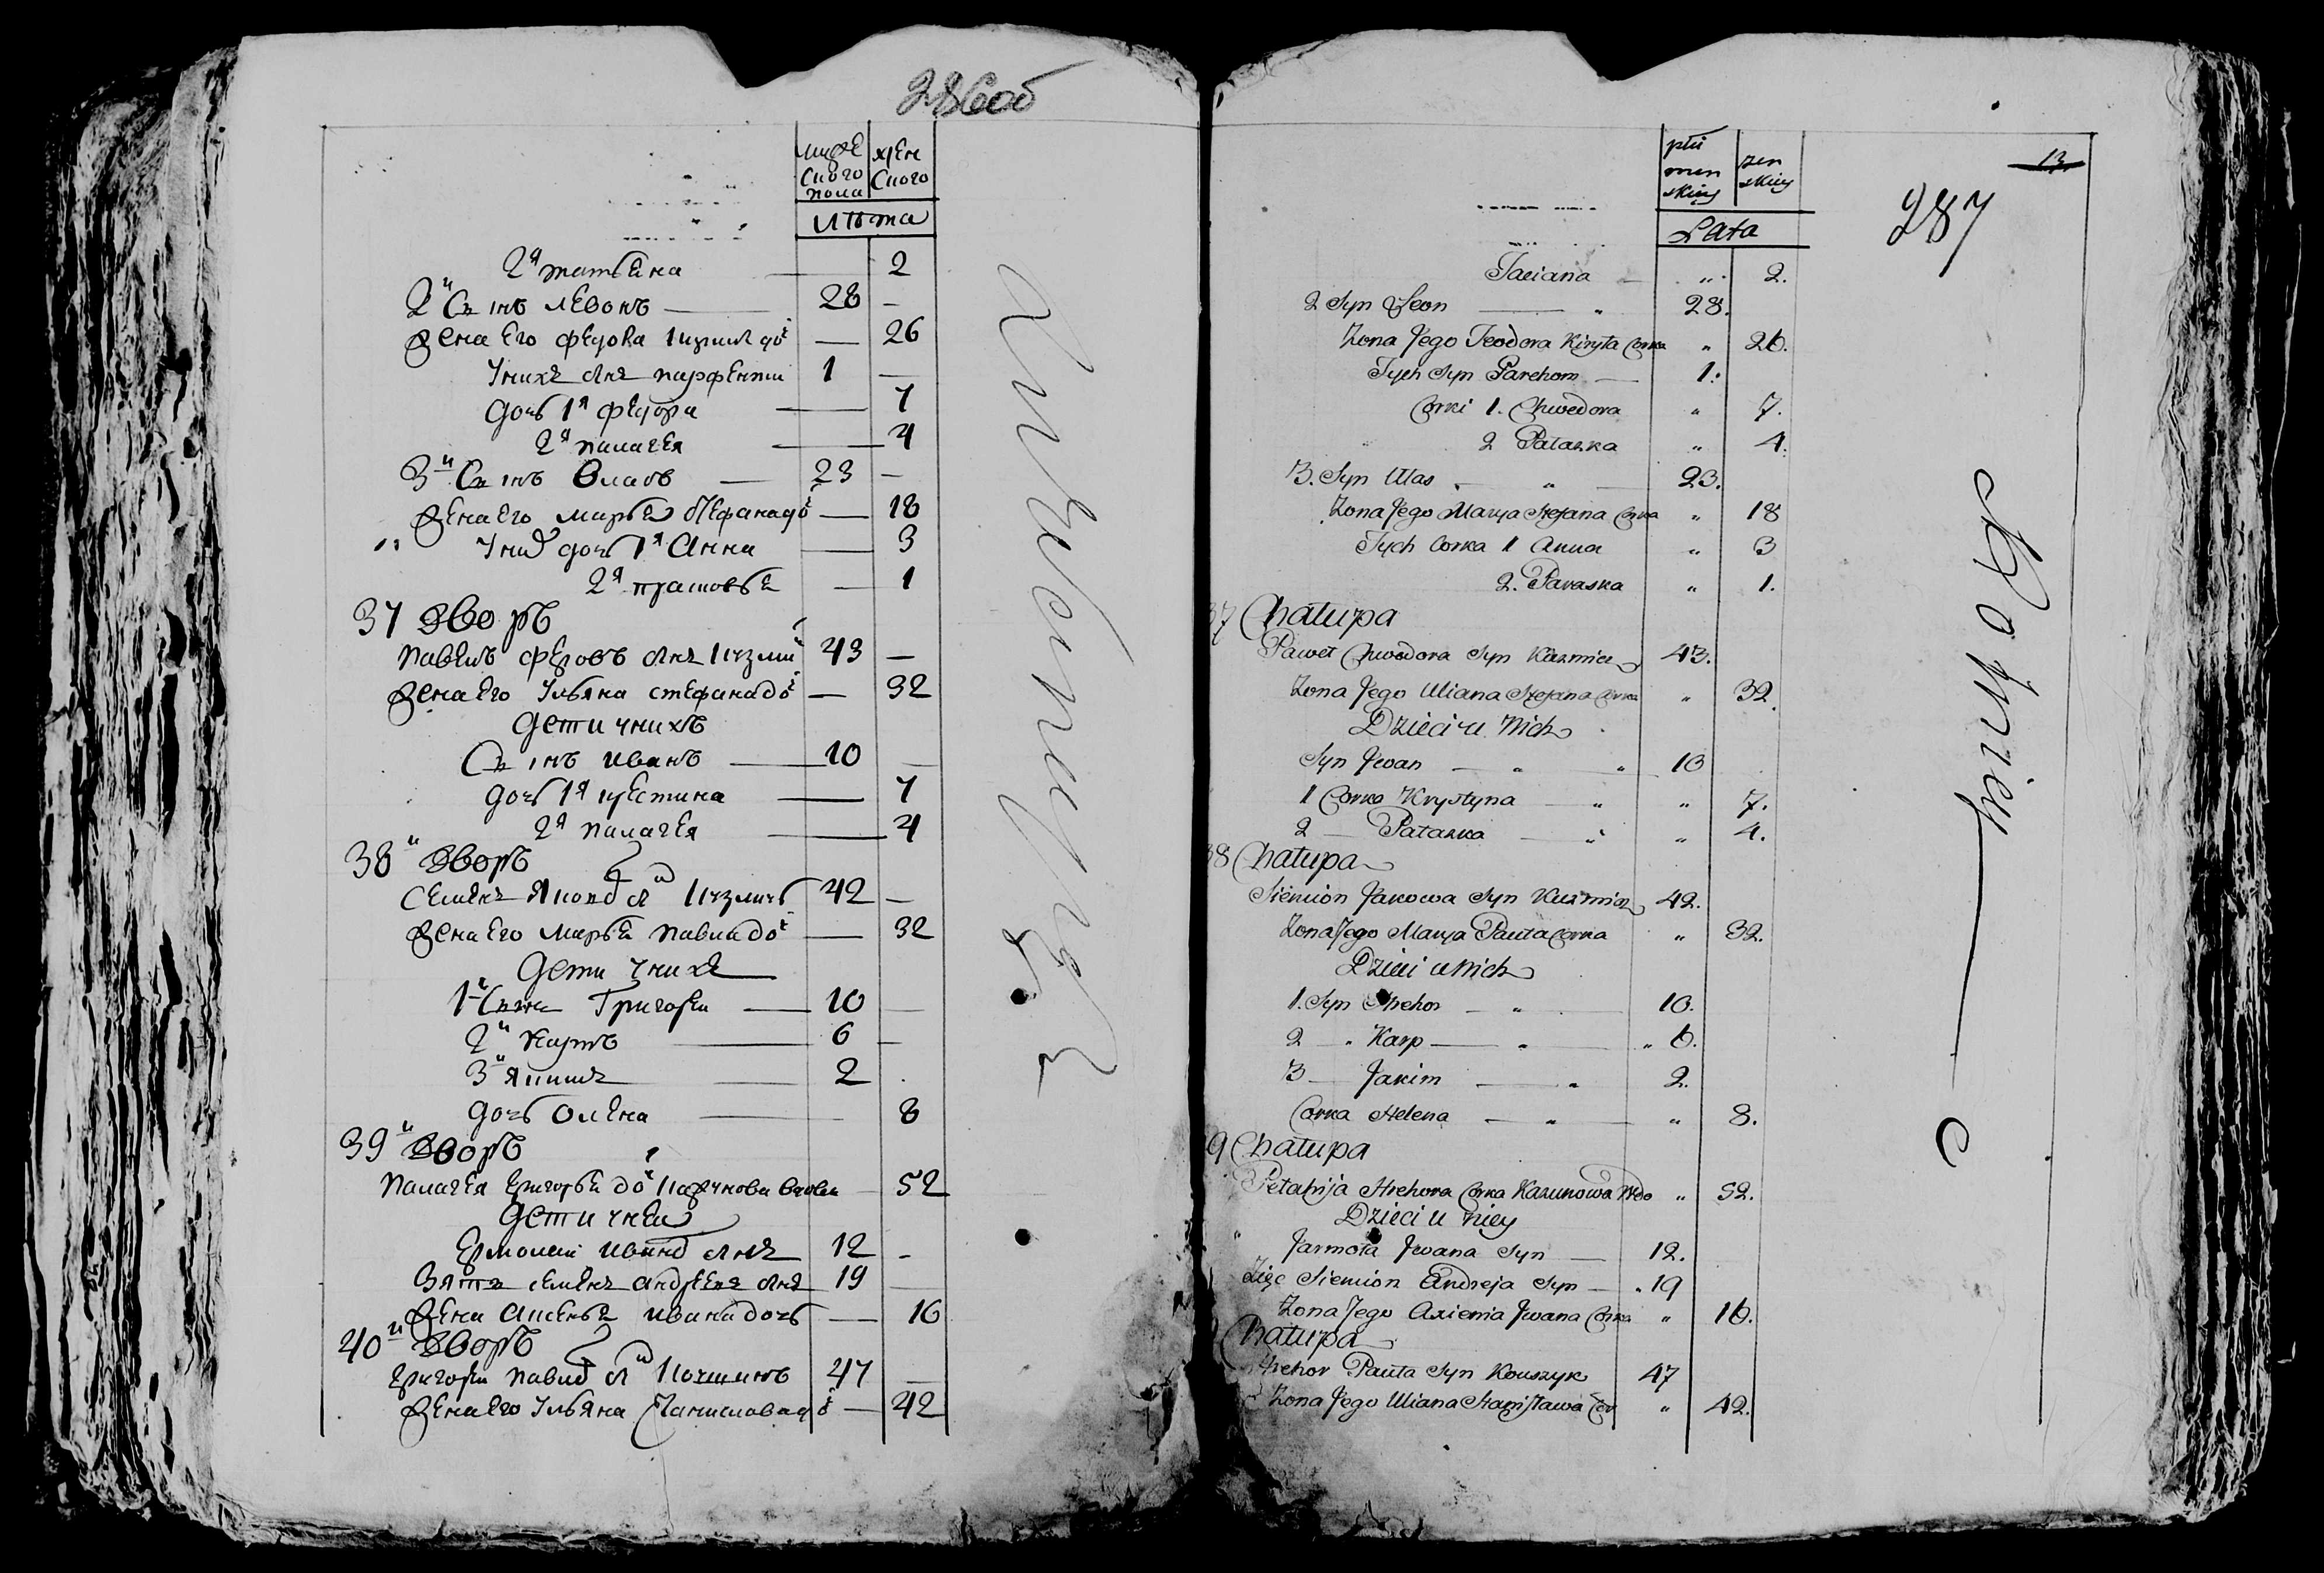 286об
мужеского пола
женского
Лѣта
2я татьяна 2
2й Сынъ Левонъ 28 —
жена Его федора кирил до: — 26
У нихъ сынъ парфентий 1 —
дочь 1я федора 7
2я палагея 4
3й Сынъ Власъ 23 —
жена Его марья Стефана до: — 18
У нихъ дочь 1я Анна 3
2я прасковья 1
37 дворъ
павелъ федоровъ сынъ Кузмич 43 —
жена Его Ульяна стефана до: — 32
дети у нихъ
Сынъ иванъ 10 —
дочь 1я кристина 7
2я палагея 4
38й дворъ
Семенъ Яковлевъ сынъ Кузмичъ 42 —
жена Его марья павла до: — 32
дети у нихъ
1й Сынъ Григорий 10 —
2й карпъ 6 —
3й якимъ 2
дочь олена 8
39й дворъ
палагея григорья до: вдова 52
дети у ней
Ермолай ивановъ сынъ 12 —
Зять семенъ андреевъ сынъ 19 —
жена аксенья ивана дочь — 16
40й дворъ
григорей павловъ сынъ 47 —
жена Его Ульяна Станиславова до: — 42
13
287
płci męnskiey
zenskiey
Lata
Taciana „ 2.
2 Syn Leon „ 28.
Zona Jego Teodora Kiryła Corka „ 26.
Tych Syn Parchom 1.
Corki 1. Chwedora „ 7.
2 Pałaszka „ 4.
3. Syn Ułas „ 23.
Zona Jego Marya Stefana Corka „ 18
Tych Corka 1 Anna „ 3
2. Paraska „ 1.
37 Chałupa
Paweł Chwedora Syn Kuzmicz 43.
Zona Jego Uliana Stefana Corka „ 32.
Dzieci u Nich
Syn Jwan „ „ 10
1 Corka Krystyna „ „ 7.
2 — Pałaszka „ „ 4.
38 Chałupa
Siemion Jakowa Syn Kuzmicz 42.
Zona Jego Marya Pawła Corka „ 32.
Dzieci u Nich
1. Syn Hrehor „ 10.
2 „ Karp „ „ 6.
3 — Jakim „ 2.
Corka Helena „ „ 8.
9 Chałupa
Petahija Hrehora Corka Wdo „ 52.
Dzieci u niey
Jarmoła Jwana Syn 12.
Zięć Siemion Andreja Syn „ 19
Zona Jego Axienia Jwana Corka „ 16.
Chałupa
Hrehor Pawła Syn Kouszyk 47
Zona Jego Uliana Stanisława Cor „ 42.